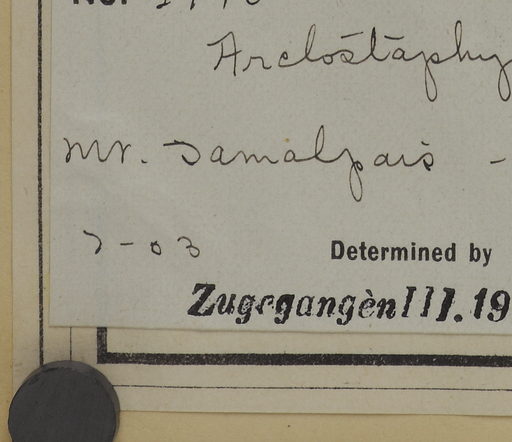 No.
Arctostaphy
Mt. Tamalpais -
7-03
Determined by
Zugegangen III. 19